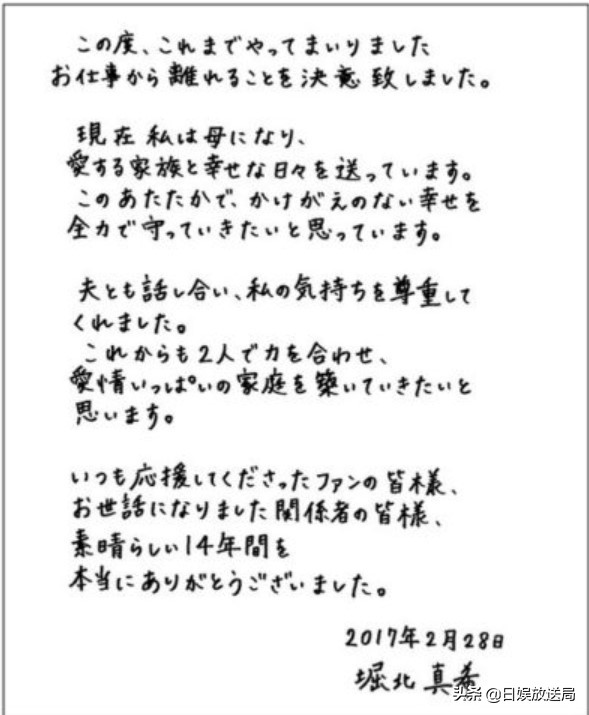 この度、これまでやってまいりました
お仕事から離れることを決意致しました。
現在私は母になり、
愛する家族と幸せな日々を送っています。
このあたたかで、かけがえのない幸せを
全力で守っていきたいと思っています。
夫とも話し合い、私の気持ちを尊重して
くれました。
これからも2人で力を合わせ、
愛情いっぱいの家庭を築いていきたいと
思います。
いつも応援してくださったファンの皆様、
お世話になりました関係者の皆様、
素晴らしい14年間を
本当にありがとうございました。
2017年2月28日
堀北真希
头条 @日娱放送局